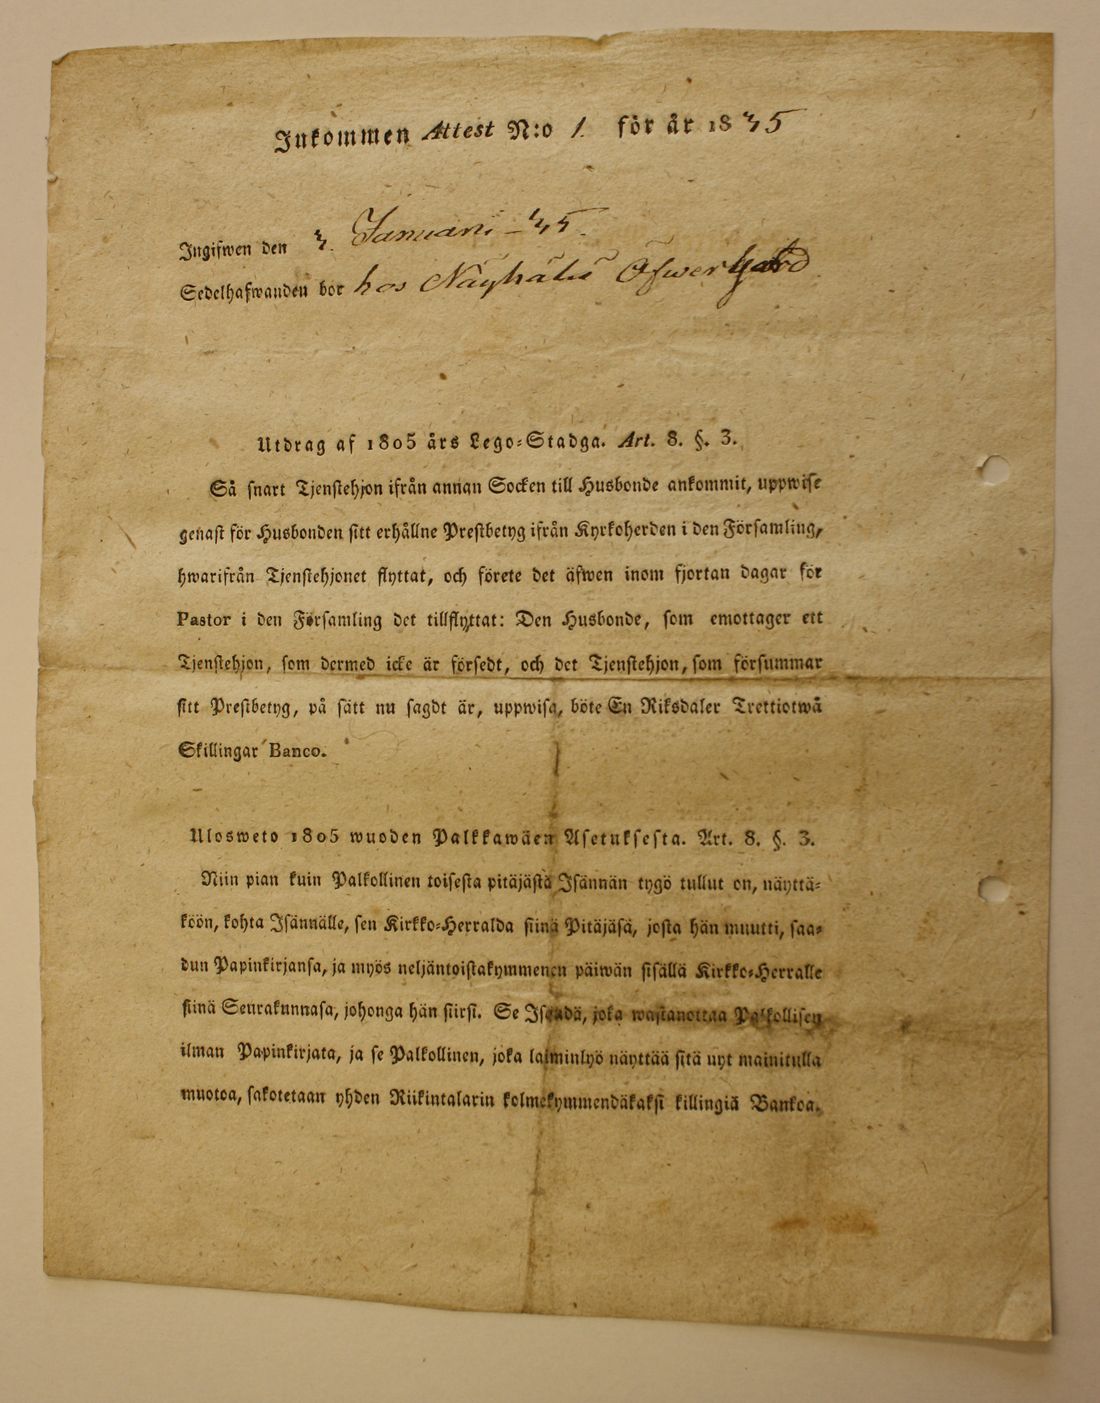 Inkommen Attest N:o 1 för år 1835
Ingifwen den 3. Januari -35.
Sedelhafwanden bor hos Näyhälä Öfwer Gård
Utdrag af 1805 års Lego-Stadga. Art. 8. §. 3.
Så snart Tjenstehjon ifrån annan Socken till Husbonde ankommit, uppwise
genast för Husbonden sitt erhållne Prestbetyg ifrån Kyrkoherden i den Församling,
hwarifrån Tjenstehjonet flyttat, och förete det äfwen inom fjortan dagar för
Pastor i den Församling det tillflyttat: Den Husbonde, som emottager ett
Tjenstehjon, som dermed icke är försedt, och det Tjenstehjon, som försummar
sitt Prestbetyg, på sätt nu sagdt är, uppwisa, böte En Riksdaler Trettiotwå
Skillingar Banco.
Ulosweto 1805 wuoden Palkkawäen Asetuksesta. Art. 8. §. 3.
Niin pian kuin Palkollinen toisesta pitäjästä Isännän tygö tullut on, näyttä-
köön, kohta Isännälle, sen Kirkko-Herralda siinä Pitäjäsä, josta hän muutti, saa-
dun Papinkirjansa, ja myös neljäntoistakymmenen päiwän sisällä Kirkko-Herralle
siinä Seurakunnasa, johonga hän siirsi. Se Isändä, joka wastanottaa Palkollisen
ilman Papinkirjata, ja se Palkollinen, joka laiminlyö näyttää sitä nyt mainitulla
muotoa, sakotetaan yhden Riikintalarin kolmekymmendäkaksi killingiä Bankoa.